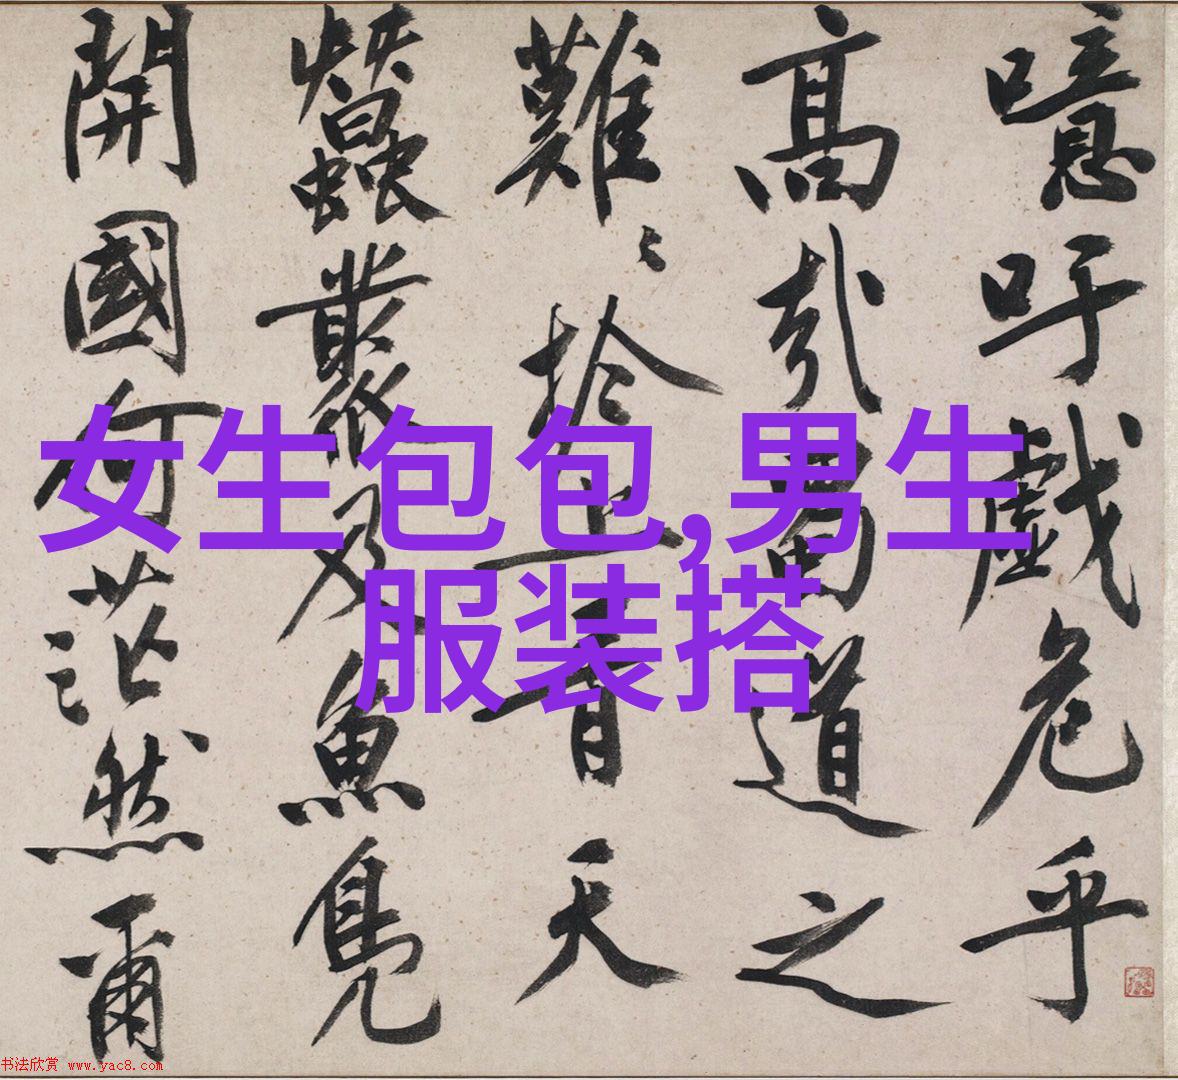 噫吁戲危乎
高哉蜀道之
難〻於上青天
蠶叢及魚鳧
開國何茫然爾
女生包包,男生
服装搭
书法欣赏 www.yac8.com